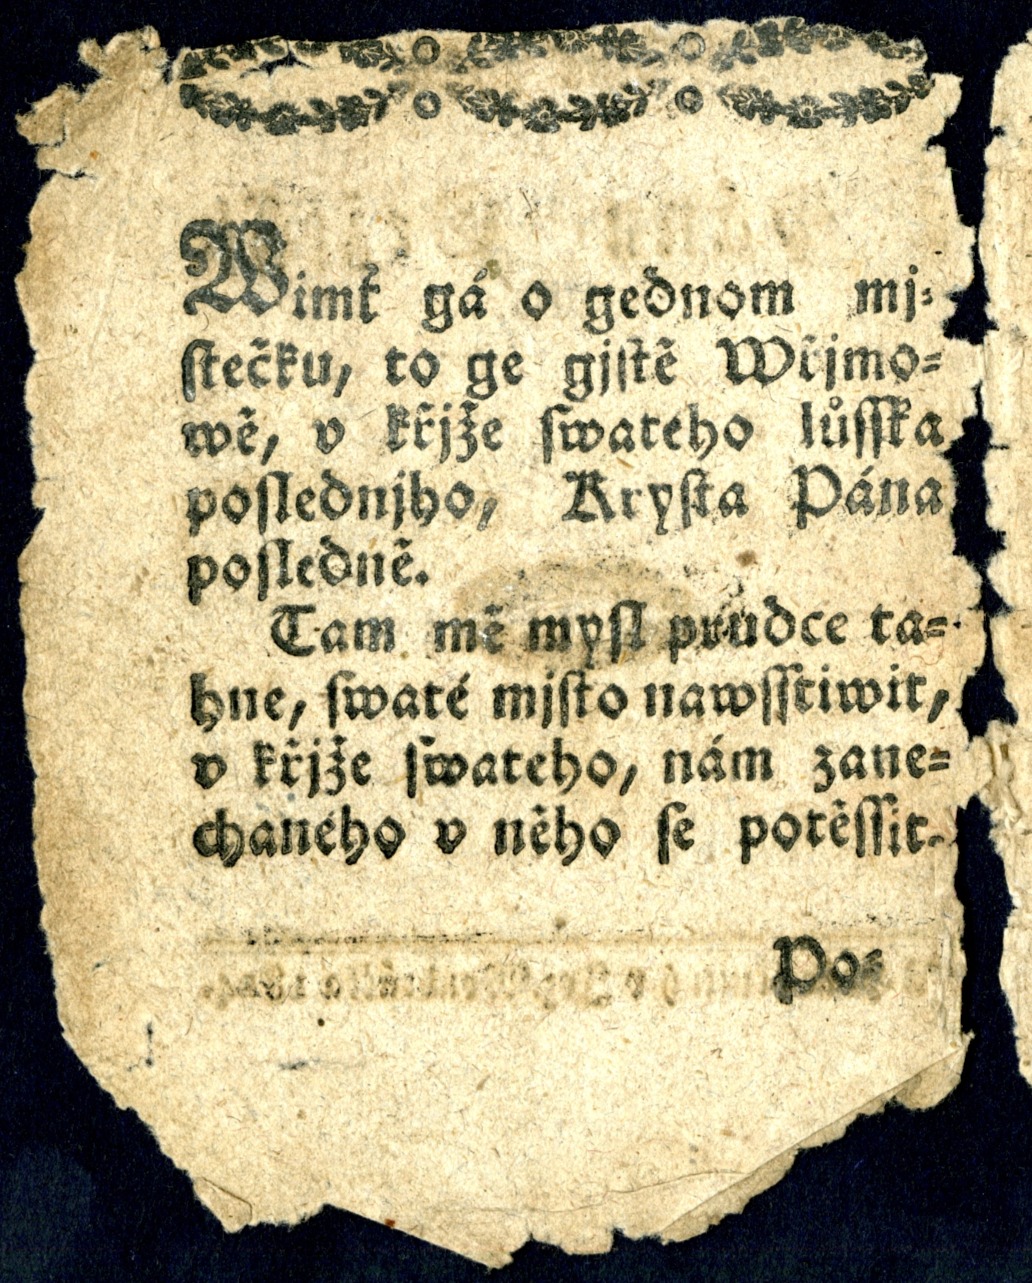 Wimť gá o gednom mj-
stečku, to ge gjstě Wřjmo-
wě, v křjže swateho lůſſka
poslednjho, Krysta Pána
posledně.
Tam mě mysl prudce ta-
hne, swaté mjsto nawſſtiwit,
v křjže swateho, nám zane-
chaného v něho se potěſſit.
Po-